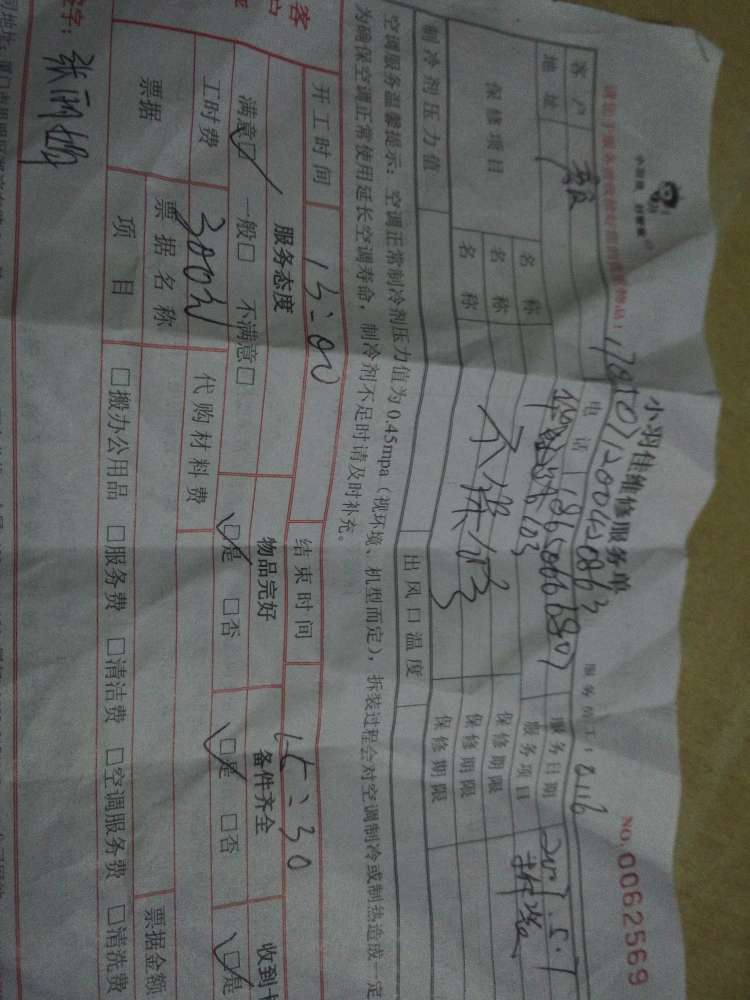 小羽佳 好管家
小羽佳维修服务单
NO. 0062569
服务员工：0116
客户
电话
服务日期
地址
服务项目 拆装
保修项目
名称
保修期限
名称
不保修
保修期限
名称
保修期限
制冷剂压力值
出风口温度
空调服务温馨提示：空调正常制冷剂压力值为0.45mpa（视环境、机型而定），拆装过程会对空调制冷或制热造成一定
为确保空调正常使用延长空调寿命，制冷剂不足时请及时补充。
开工时间 13:00 结束时间 15:30
客户
服务态度 物品完好 备件齐全 收到
满意□ 一般□ 不满意□ □是 □否 □是 □否 □是
工时费 300元 代购材料费
票据 票据名称 票据金额
项目 □搬办公用品 □服务费 □清洁费 □空调服务费 □清洗费
签字：